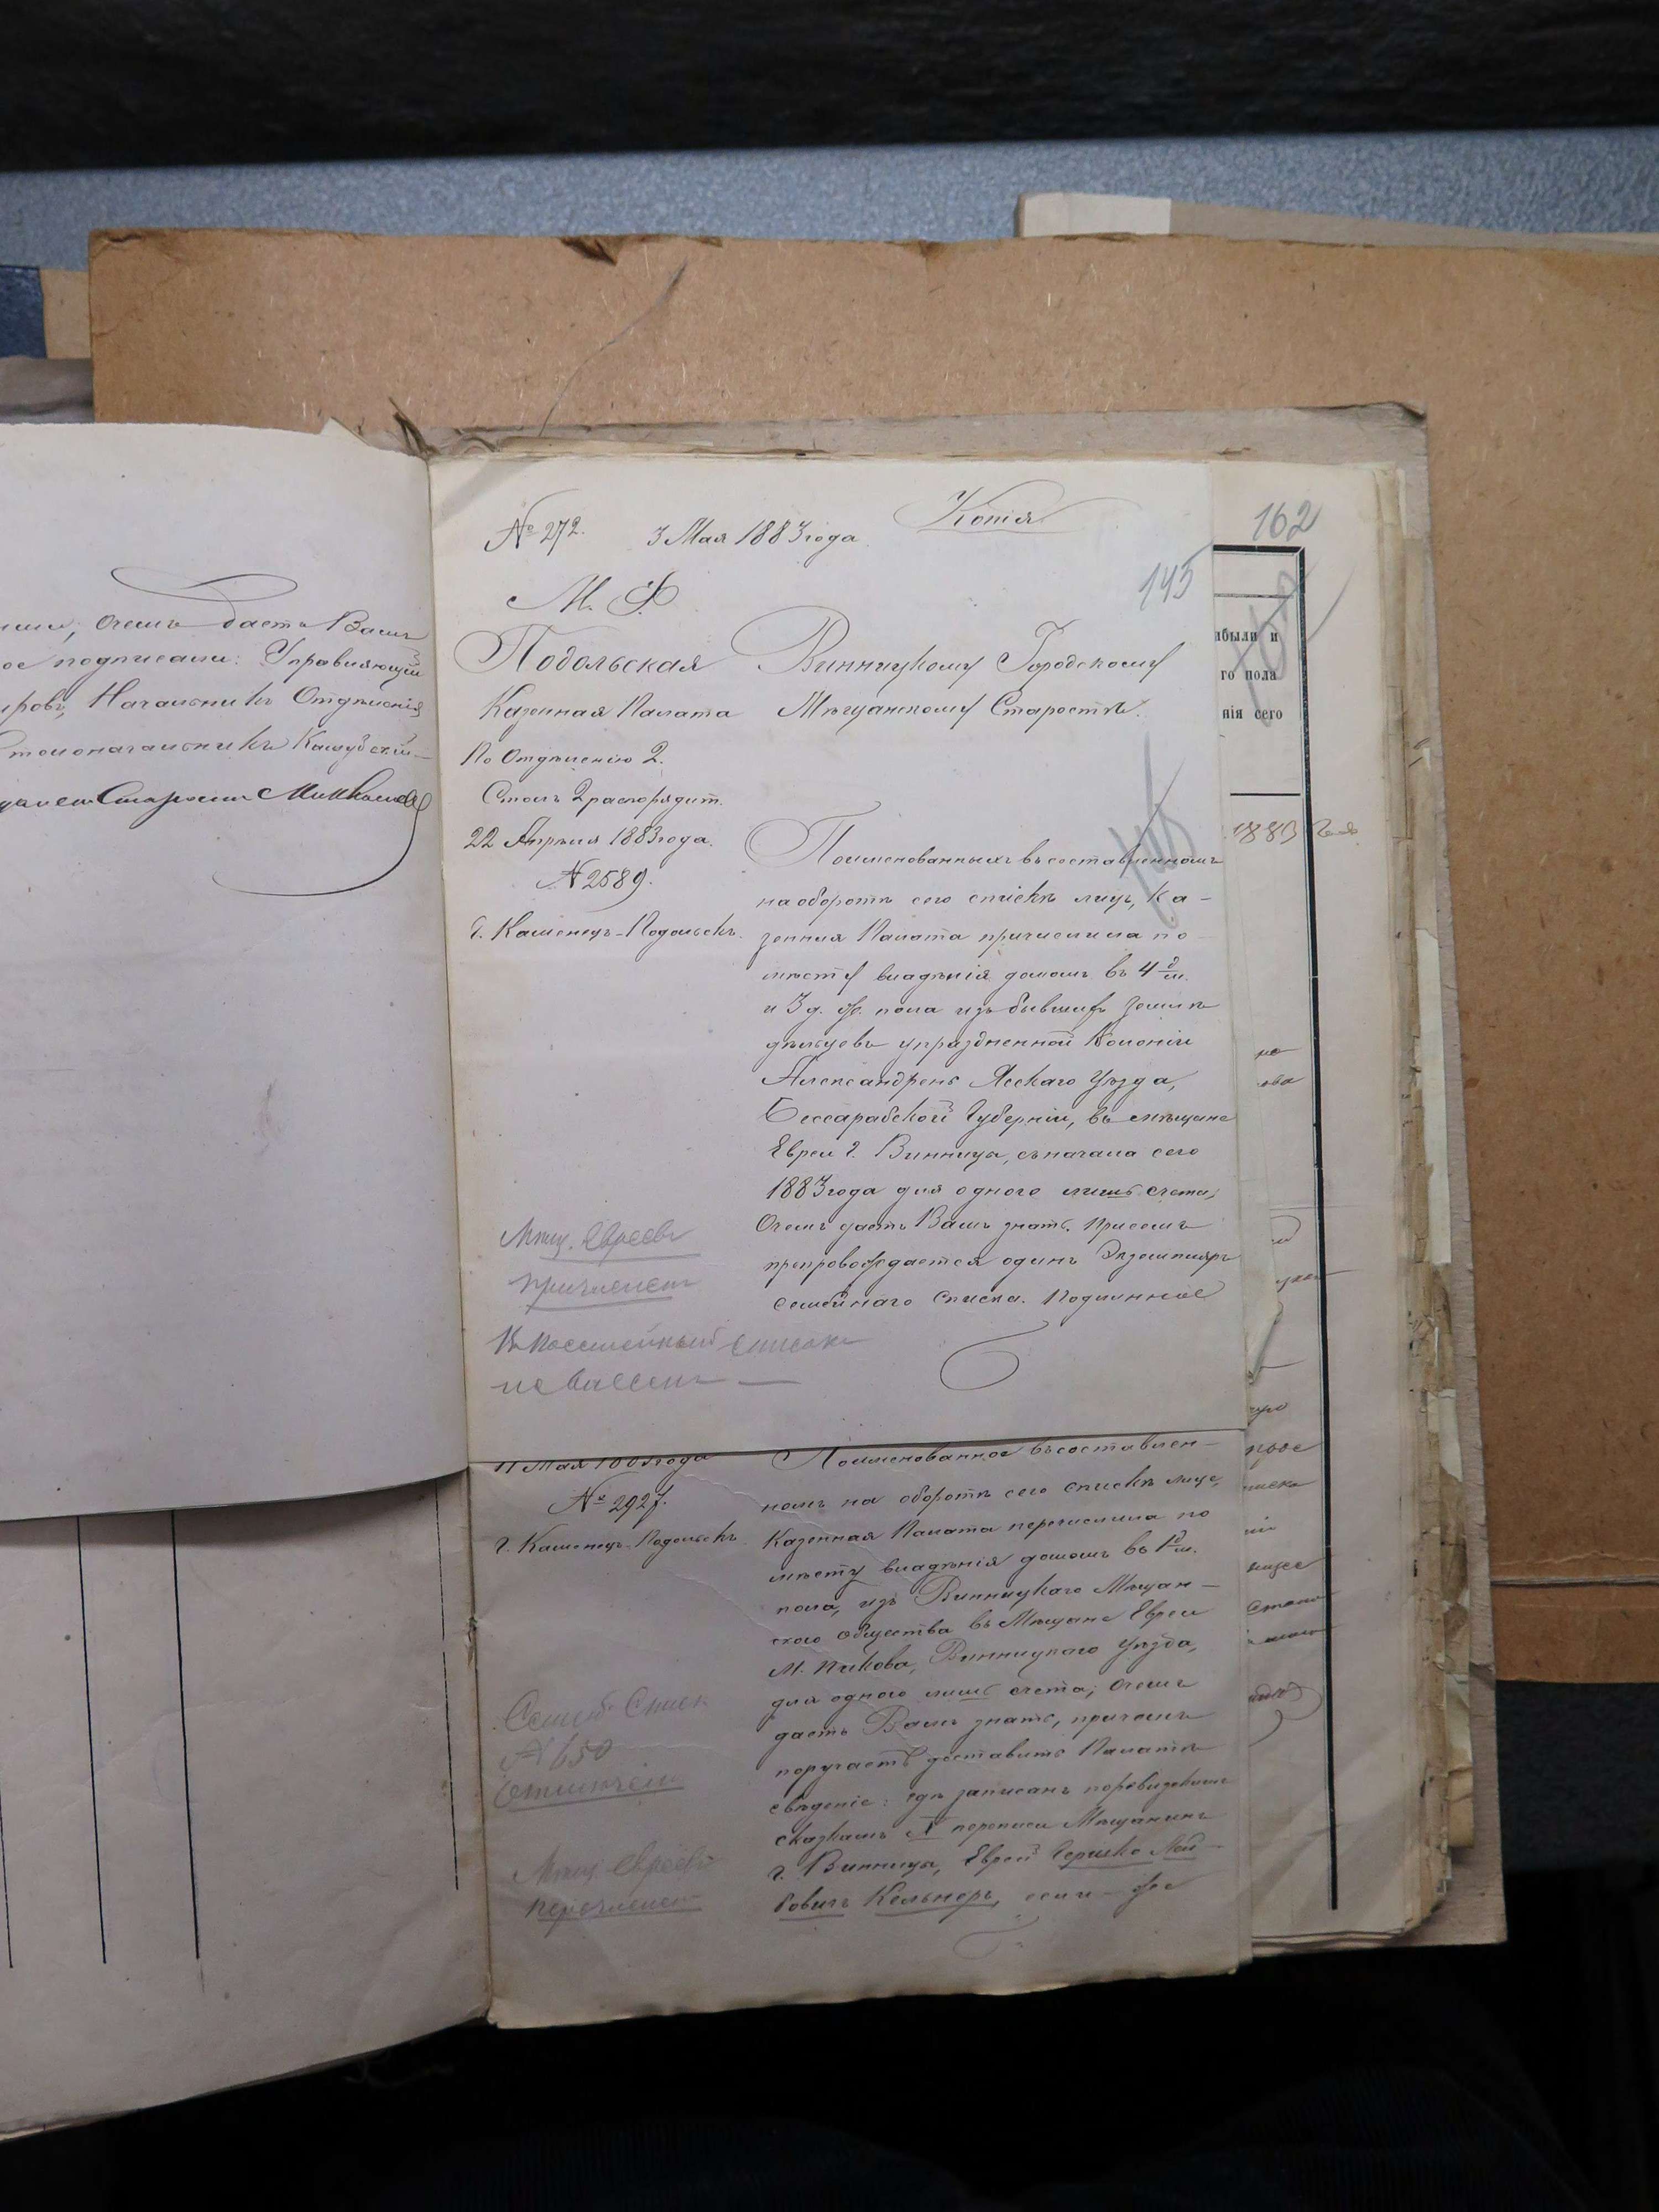 очемъ даетъ Вамъ
ое подписали: Управляющій
Начальникъ Отдѣленія
Столоначальникъ
Копія
№ 272.
3 Мая 1883 года
162
145
М. Ф.
Подольская
Казенная Палата
По Отдѣленію 2.
Столъ 2 распорядит.
22 Апрѣля 1883 года.
№ 2589.
г. Каменецъ-Подольскъ.
Винницкому Городскому
Мѣщанскому Старостѣ.
Поименованныхъ въ составленномъ
на оборотѣ сего спискѣ лицъ, Ка-
зенная Палата причислила по
мѣсту владѣнія домомъ въ 4 д. м.
и 3 д. ж. пола изъ бывшихъ земле
дѣльцевъ упраздненной Колоніи
Александрень Ясскаго Уѣзда,
Бессарабской Губерніи, въ мѣщане
Евреи г. Винница, съ начала сего
1883 года для одного лишь счета;
Очемъ даетъ Вамъ знать. При семъ
препровождается одинъ Экземпляръ
семейнаго списка. Подлинное
Мѣщ. Евреевъ
причисленъ
В посемейный списокъ
не внесенъ —
11 Мая 1883 года
№ 2927.
г. Каменецъ-Подольскъ.
Поименованное въ составлен-
номъ на оборотѣ сего спискѣ лице,
Казенная Палата перечислила по
мѣсту владѣнія домомъ въ 1 д. м.
пола, изъ Винницкаго Мѣщан-
скаго общества въ Мѣщане Евреи
м. Пикова, Винницкаго Уѣзда,
для одного лишь счета; Очемъ
даетъ Вамъ знать, причемъ
поручаетъ доставить Палатѣ
свѣденіе: гдѣ записанъ по ревизскимъ
сказкамъ X переписи Мѣщанинъ
г. Винницы, Еврей Гершко Лей-
бовичъ Кельнеръ, если-же
Семей. Списк
№ 650
отмѣчен
Мѣщ. Евреевъ
перечислен
ибыли и
го пола
нія сего
1883 года